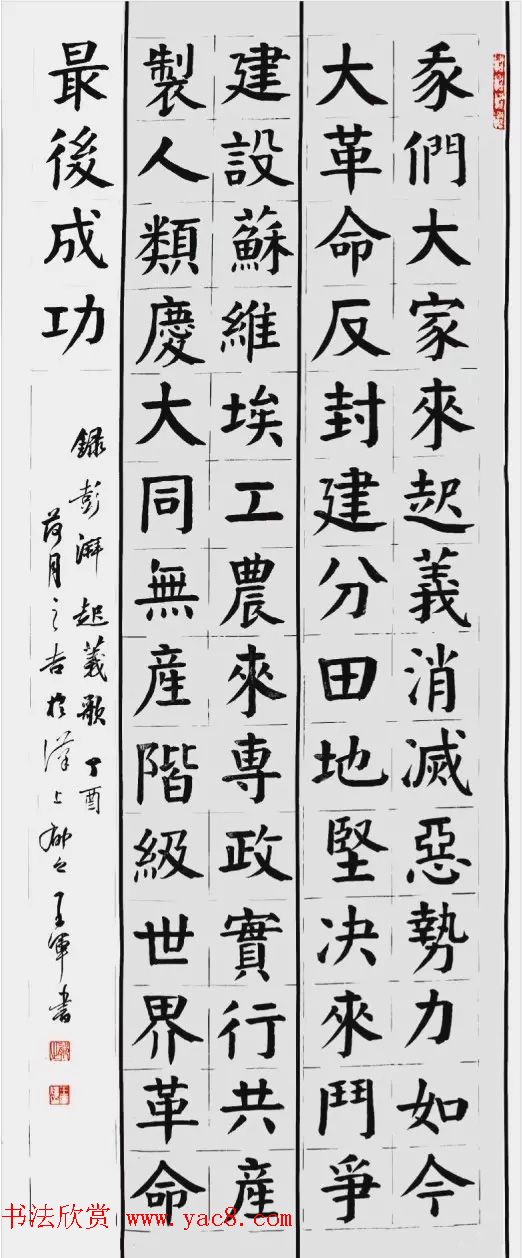 我們大家來起義消滅惡勢力如今
大革命反封建分田地堅决來鬥爭
建設蘇維埃工農來專政實行共産
製人類慶大同無産階級世界革命
最後成功
録彭湃起義歌丁酉
荷月之吉於漢上王軍書
书法欣赏 www.yac8.com